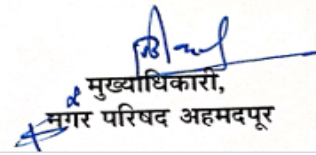 मुख्याधिकारी,
नगर परिषद अहमदपूर